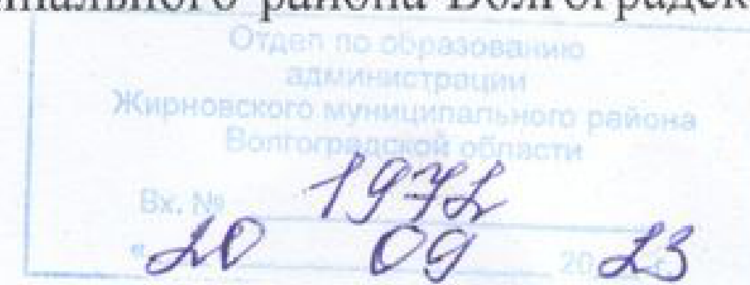 нального района Волгоградск
Отдел по образованию
администрации
Жирновского муниципального района
Волгоградской области
Вх. № 1972
"20 09 2023